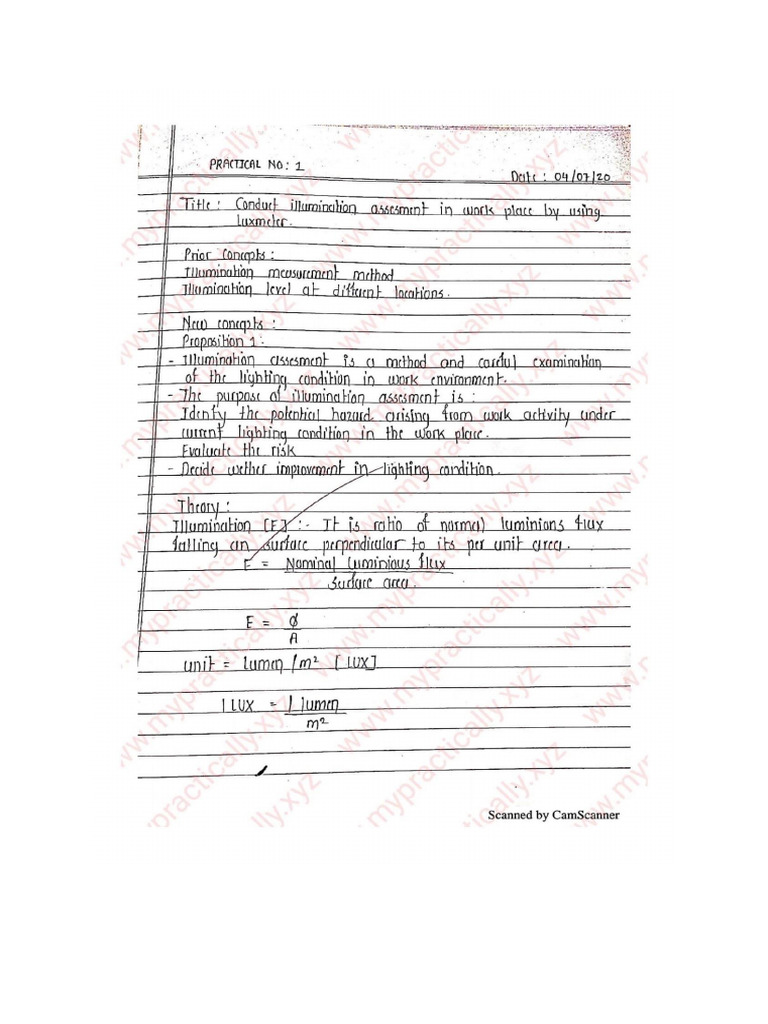 PRACTICAL NO: 1
Date: 04/07/20
Title: Conduct illumination assesment in work place by using
luxmeter.
Prior concepts:
Illumination measurement method
Illumination level at different locations.
New concepts:
Proposition 1:
- Illumination assesment is a method and careful examination
of the lighting condition in work environment.
- The purpose of illumination assesment is:
Identy the potential hazard arising from work activity under
current lighting condition in the work place.
Evaluate the risk
- Decide wether improvement in lighting condition.
Theory:
Illumination [E] :- It is ratio of normal luminious flux
falling an surface perpendicular to its per unit area.
E = Nominal luminious flux
surface area.
E = ϕ
A
unit = lumen /m² [LUX]
1 LUX = 1 lumen
m²
Scanned by CamScanner
www.mypractically.xyz